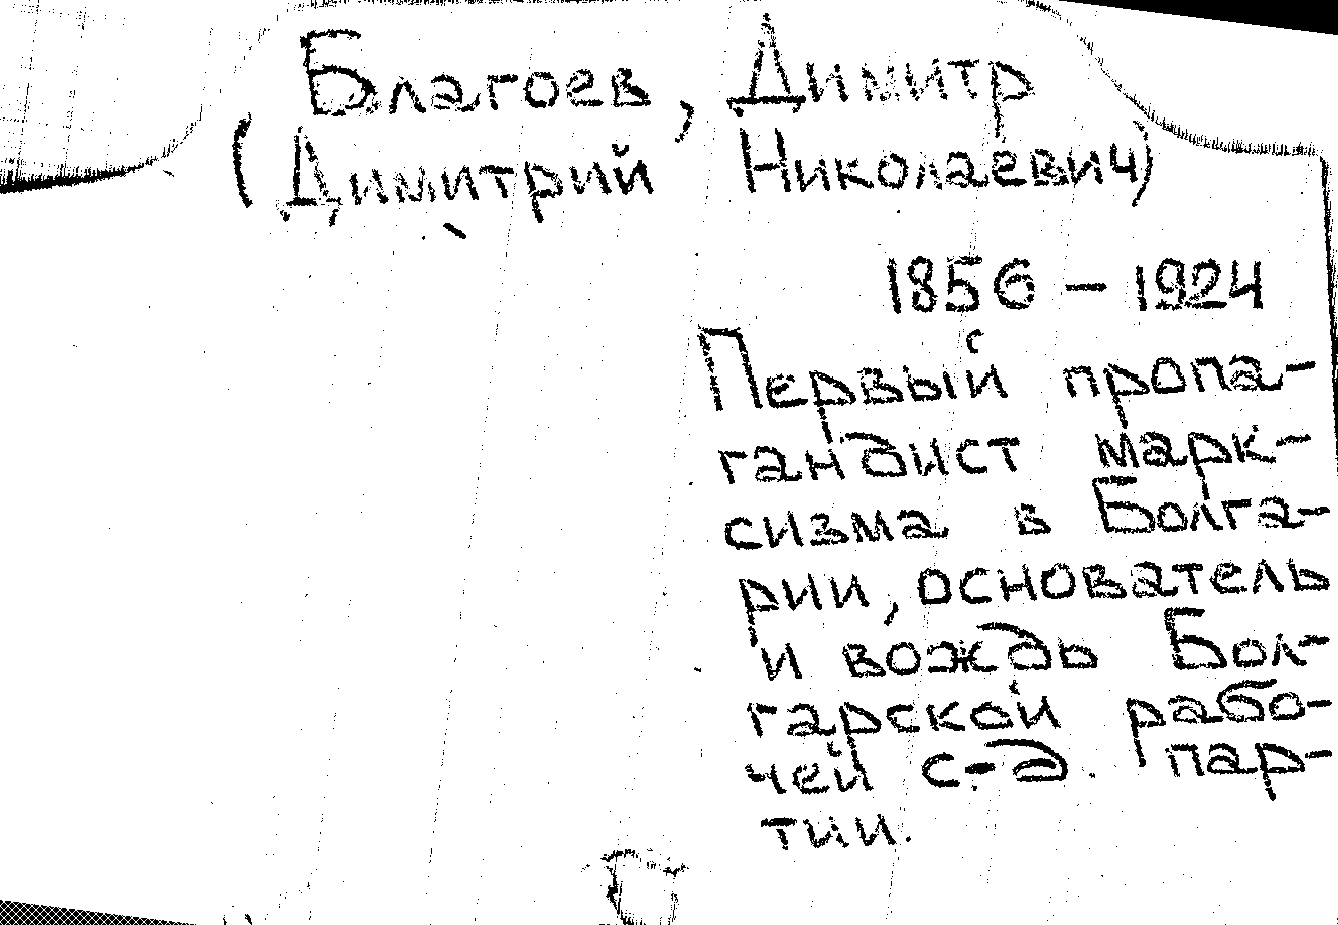 Благоев, Димитр
(Димитрий Николаевич)
1856 – 1924
Первый пропа-
гандист марк-
сизма в Болга-
рии, основатель
и вождь Бол-
гарской рабо-
чей с.-д. пар-
тии.